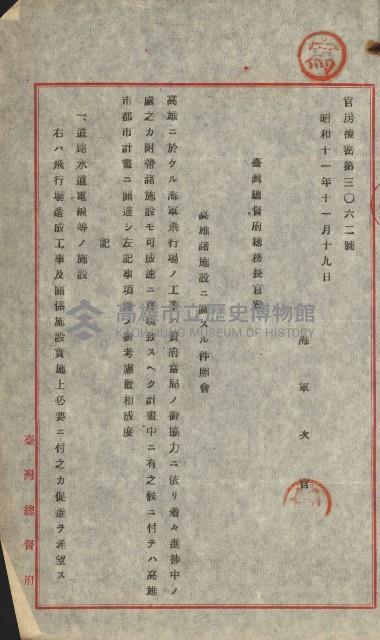 官房機密第三〇六二號
昭和十一年十一月十九日
海軍次官
臺灣總督府總務長官
高雄諸施設ニ關スル件照會
高雄ニ於クル海軍飛行場ノ工事ハ貴府當局ノ御協力ニ依リ着々進捗中ノ
處之カ附帶諸施設モ可成速ニ實現致スヘク計畫中ニ有之候ニ付テハ高雄
市都市計畫ニ關連シ左記事項御考慮置相成度
記
一、道路水道電線等ノ施設
右ハ飛行場造成工事及關係施設實施上必要ニ付之カ促進ヲ希望ス
臺灣總督府
高雄市立歷史博物館
KAOHSIUNG MUSEUM OF HISTORY